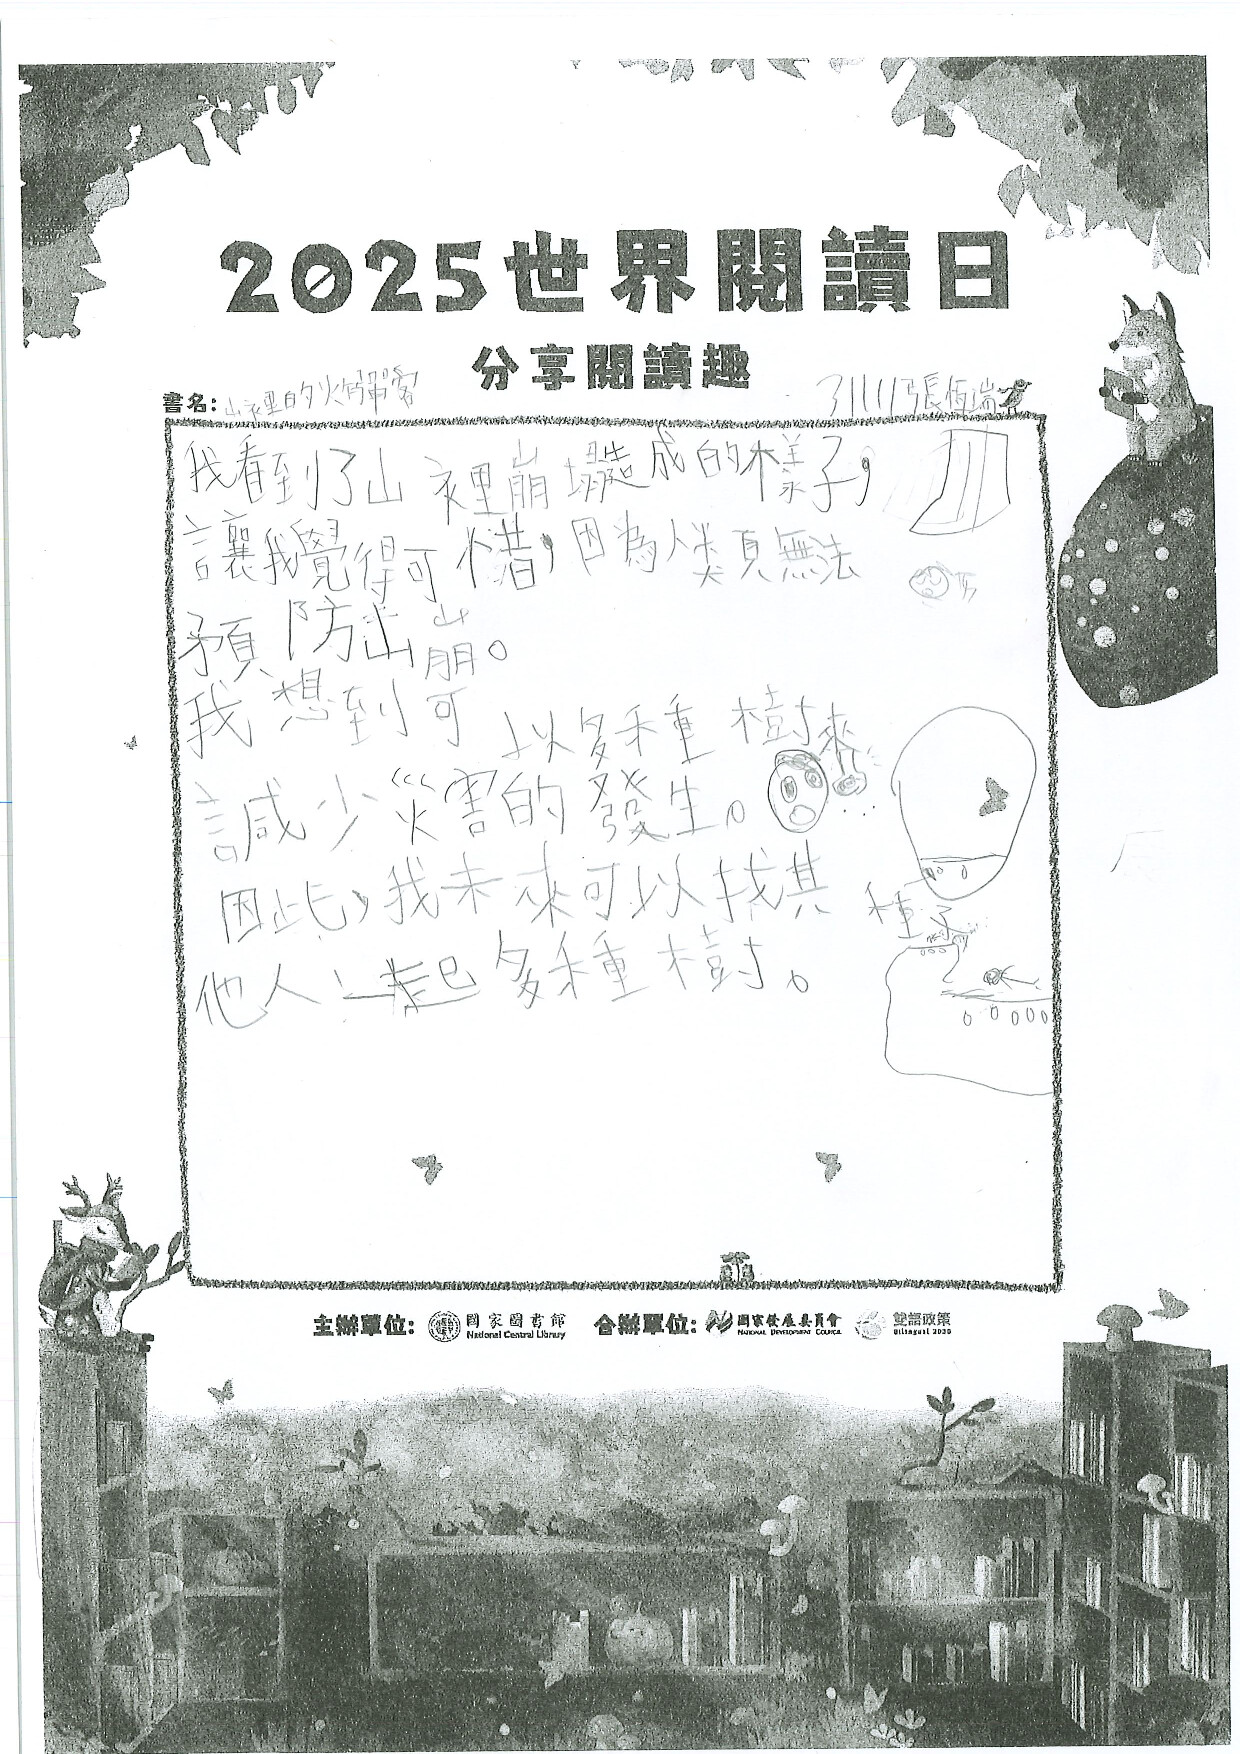 2025世界閱讀日
分享閱讀趣
書名:山裡的火箭彈客
31111張恆瑞
我看到了山裡崩塌造成的樣子，
讓我覺得可惜，因為人類真無法
預防山崩。
我想到可以多種樹來
減少災害的發生。
因此，我未來可以找其
種子
他人一起多種樹。
主辦單位: 國家圖書館 National Central Library 合辦單位: 國家發展委員會 NATIONAL DEVELOPMENT COUNCIL 雙語政策 Bilingual 2030